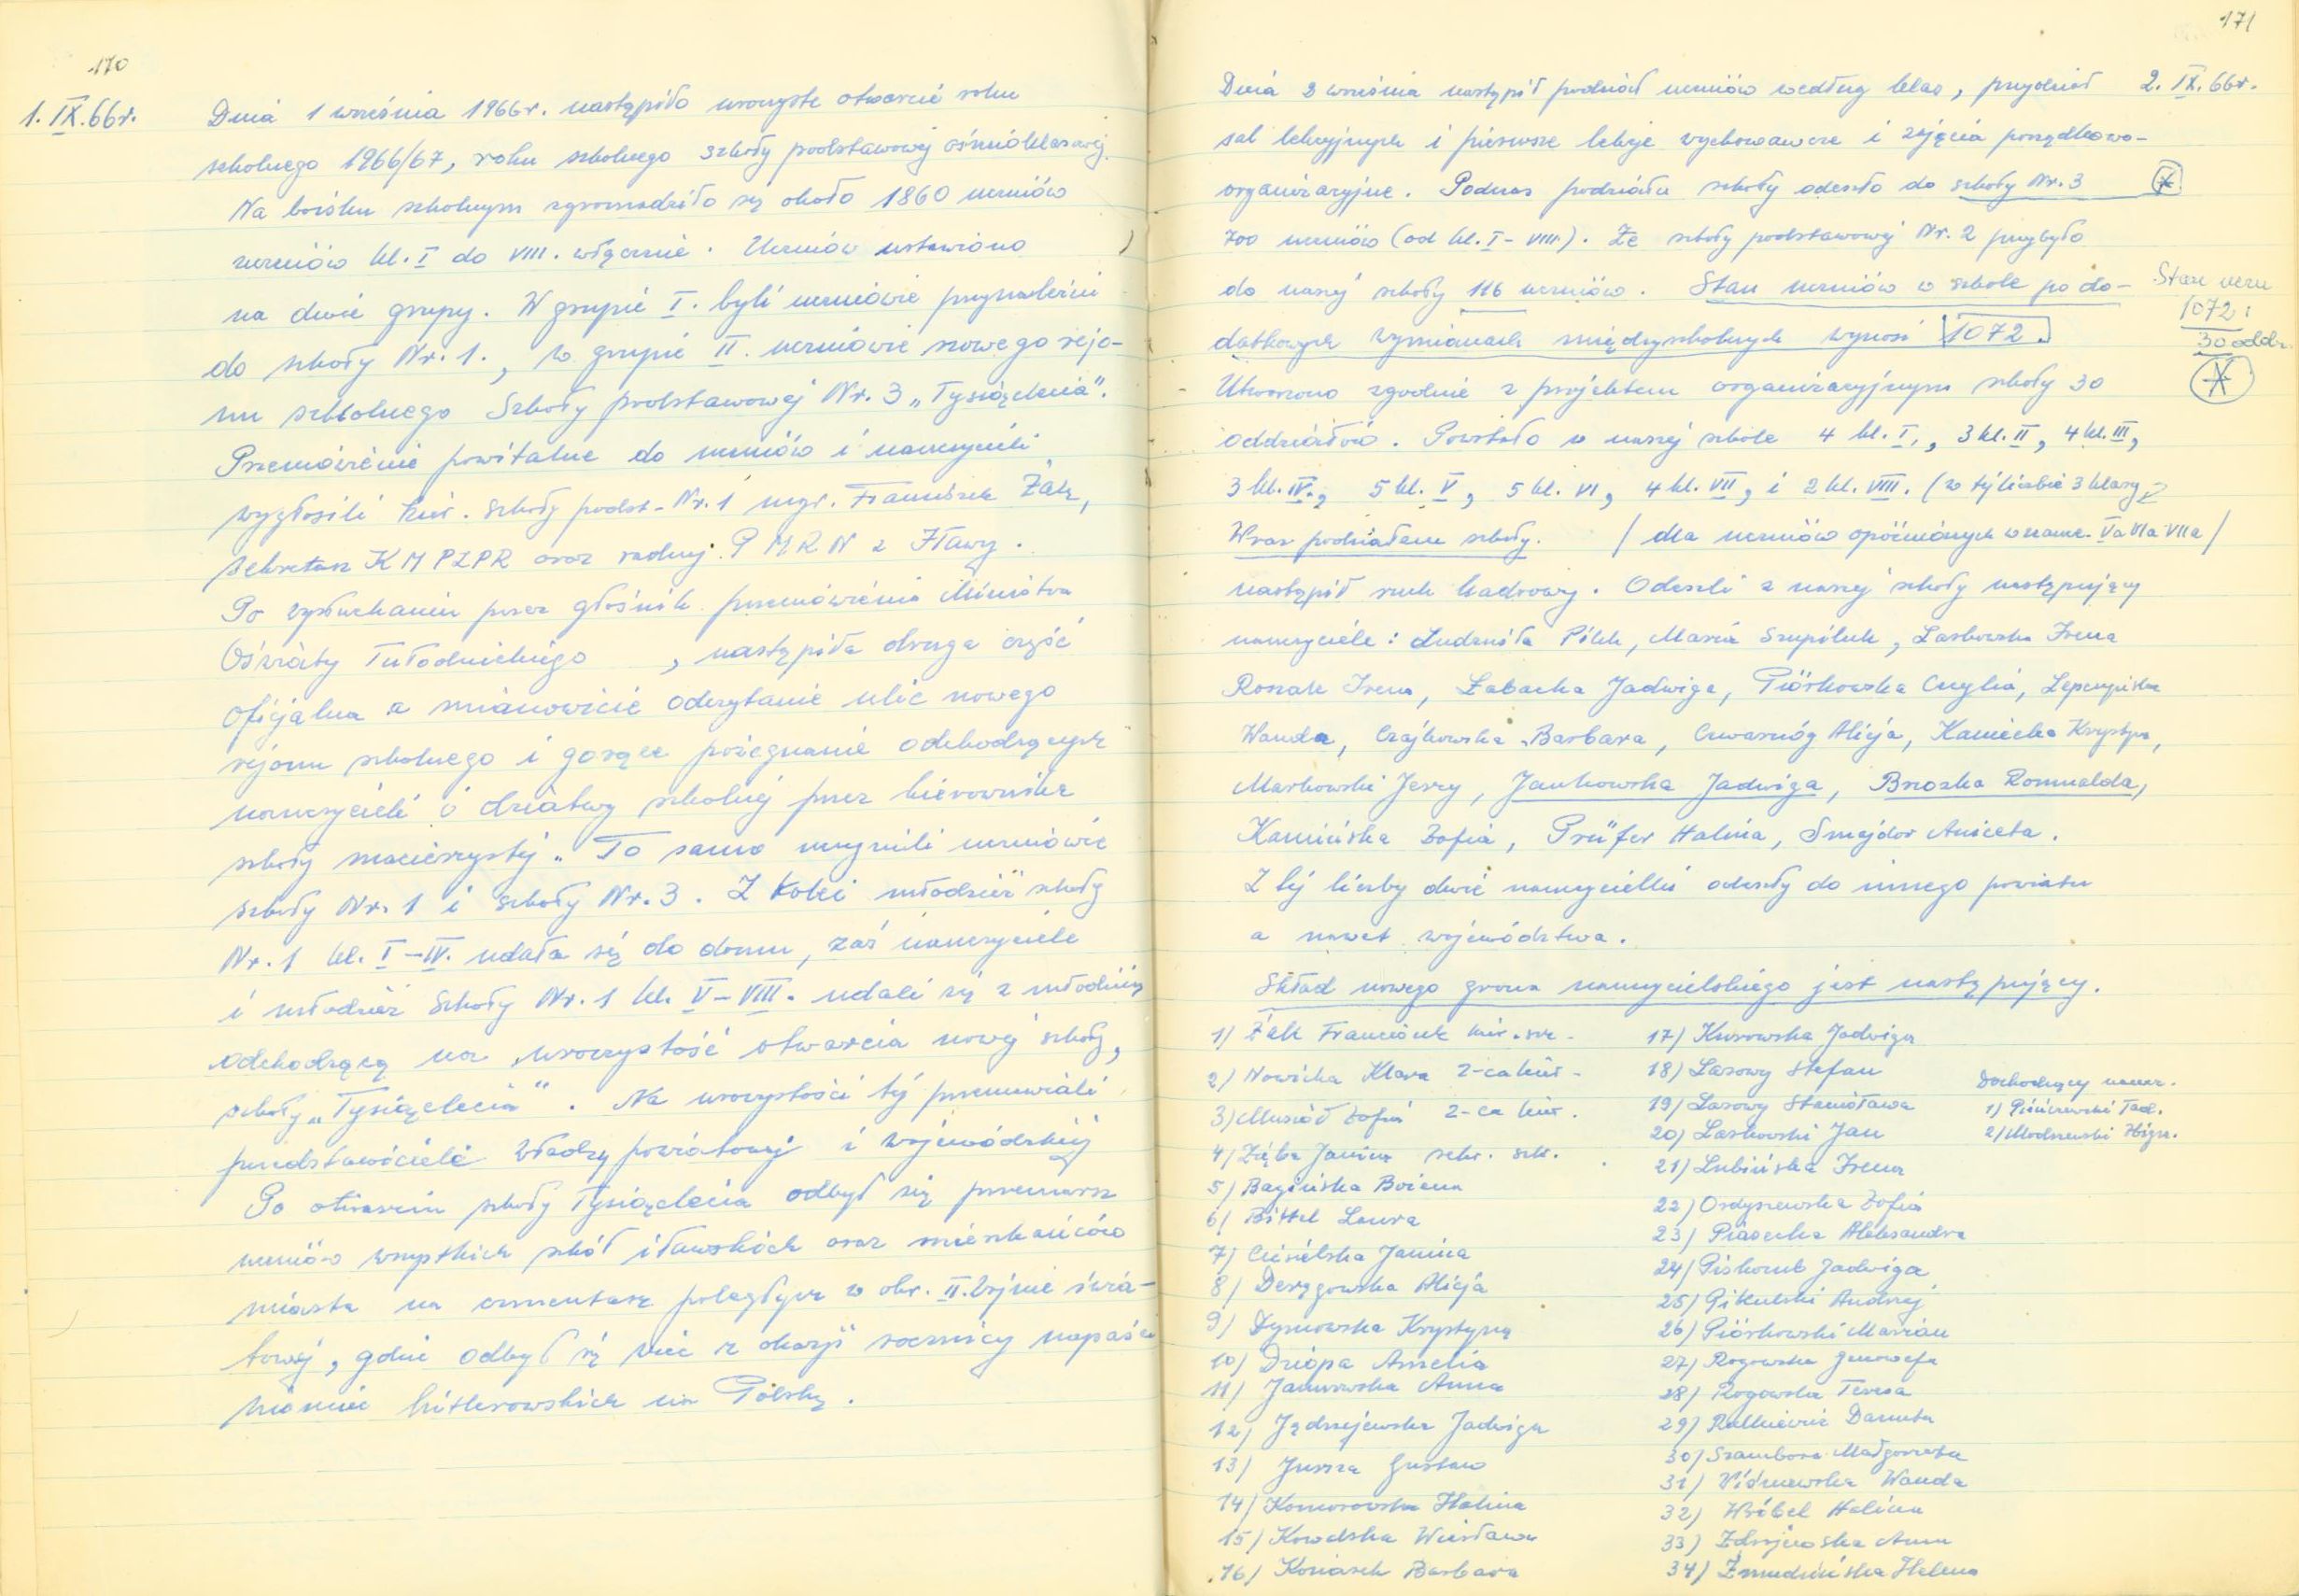 170
1.IX.66r.
Dnia 1 września 1966r. nastąpiło uroczyste otwarcie roku
szkolnego 1966/67, roku szkolnego szkoły podstawowej ośmioklasowej.
Na boisku szkolnym zgromadziło się około 1860 uczniów
uczniów kl. I do VIII. włącznie. Uczniów ustawiono
na dwie grupy. W grupie I. byli uczniowie przynależni
do szkoły Nr. 1., w grupie II. uczniowie nowego rejo-
nu szkolnego Szkoły podstawowej Nr. 3 „Tysiąclecia".
Przemówienie powitalne do uczniów i nauczycieli
wygłosili kier. szkoły podst. Nr. 1 mgr. Franciszek Żak,
sekretarz KM PZPR oraz radny P MRN z Iławy.
Po wysłuchaniu przez głośnik przemówienia Ministra
Oświaty Tułodzieckiego , nastąpiła druga część
oficjalna a mianowicie odczytanie ulic nowego
rejonu szkolnego i gorące pożegnanie odchodzących
nauczycieli i dziatwy szkolnej przez kierownika
szkoły macierzystej. To samo uczynili uczniowie
szkoły Nr. 1 i szkoły Nr. 3. Z kolei młodzież szkoły
Nr. 1 kl. I–IV. udała się do domu, zaś nauczyciele
i młodzież Szkoły Nr. 1 kl. V–VIII. udali się z młodzieżą
odchodzącą na uroczystość otwarcia nowej szkoły,
szkoły „Tysiąclecia". Na uroczystości tej przemawiali
przedstawiciele władzy powiatowej i wojewódzkiej
Po otwarciu szkoły Tysiąclecia odbył się przemarsz
uczniów wszystkich szkół iławskich oraz mieszkańców
miasta na cmentarz poległych w okr. II. Wojnie świa-
towej, gdzie odbył się wiec z okazji rocznicy napaści
niemiec hitlerowskich na Polskę.
171
2. IX. 66r.
Dnia 2 września nastąpił podział uczniów według klas, przydział
sal lekcyjnych i pierwsze lekcje wychowawcze i zajęcia porządkowo-
organizacyjne. Podczas podziału szkoły odeszło do szkoły Nr. 3
700 uczniów (od kl. I–VIII). Ze szkoły podstawowej Nr. 2 przybyło
do naszej szkoły 116 uczniów. Stan uczniów w szkole po do-
datkowych wymianach międzyszkolnych wynosi 1072.
Stan uczn
1072:
30 oddz.
Utworzono zgodnie z projektem organizacyjnym szkoły 30
oddziałów. Powstało w naszej szkole 4 kl. I., 3 kl. II, 4 kl. III,
3 kl. IV., 5 kl. V, 5 kl. VI, 4 kl. VII, i 2 kl. VIII. (w tej liczbie 3 klasy
Wraz podziałem szkoły. / dla uczniów opóźnionych w nauce. Va VIa VIIa /
nastąpił ruch kadrowy. Odeszli z naszej szkoły następujący
nauczyciele: Ludmiła Pilch, Maria Szupiluk, Laskowska Irena
Roszak Irena, Łabacka Jadwiga, Piórkowska Cecylia,
Wanda, Czajkowska Barbara, Czwarnóg Alicja, Kaniecka Krystyna,
Markowski Jerzy, Jankowska Jadwiga, Brozka Romualda,
Kamińska Zofia, Prüfer Halina, Smajdor Aniceta.
Z tej liczby dwie nauczycielki odeszły do innego powiatu
a nawet województwa.
Skład nowego grona nauczycielskiego jest następujący.
1) Żak Franciszek kier. szk.
2) Nowicka Klara z-ca kier.
3) Musiał Zofia z-ca kier.
4) Zięba Janina sekr. szk.
5) Bagińska Bożena
6) Bittel Laura
7) Ciesielska Janina
8) Deręgowska Alicja
9) Dymowska Krystyna
10) Dziopa Amelia
11) Janowska Anna
12) Jędrzejewska Jadwiga
13) Jursza Gustaw
14) Komorowska Halina
15) Kowalska Wiesława
16) Koniasek Barbara
17) Kurowska Jadwiga
18) Lasowy Stefan
19) Lasowy Stanisława
20) Laskowski Jan
21) Lubińska Irena
22) Ordyszewska Zofia
23) Piasecka Aleksandra
24) Piskorek Jadwiga
25) Pikulski Andrzej
26) Piórkowski Marian
27) Rogowska Genowefa
28) Rogowska Teresa
29) Rutkiewicz Danuta
30) Szambora Małgorzata
31) Wiśniewska Wanda
32) Wróbel Halina
33) Zdrojewska Anna
34) Żmudzińska Helena
Dochodzący naucz.
1) Piściewski Tad.
2) Modzewski Zbign.